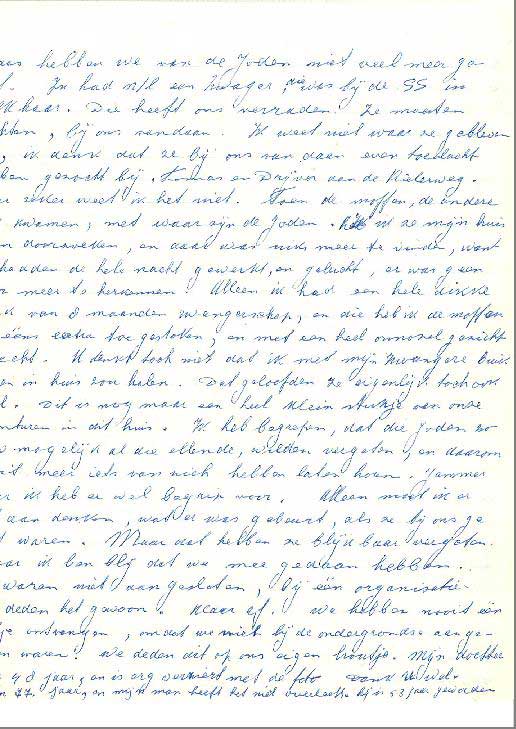 hebben we van de Joden niet veel meer ge-
Ik had nl een zwager, die was bij de SS in
haar. Die heeft ons verraden. Ze moesten
, bij ons vandaan. Ik weet niet waar ze gebleven
, ik denk dat ze bij ons van daan even toevlucht
gezocht bij en Drijver aan de Kielerweg.
zeker weet ik het niet. Toen de moffen, de andere
kwamen, met waar zijn de Joden. ze mijn huis
doorzoeken, en daar was niks meer te vinden, want
hadden de hele nacht gewerkt, en gelucht, er was geen
meer te herkennen. Alleen ik had een hele dikke
van 8 maanden zwangerschap, en die heb ik de moffen
eens extra toe gestoken, en met een heel onnozel gezicht
U denkt toch niet dat ik met mijn zwangere buik
in huis zou halen. Dat geloofden ze eigenlijk toch ook
Dit is nog maar een heel klein stukje van onze
in dit huis. Ik heb begrepen, dat die Joden zo
mogelijk al die ellende, wilden vergeten, en daarom
meer iets van zich hebben laten horen. Jammer
ik heb er wel begrip voor. Alleen moet ik er
aan denken, wat er was gebeurt, als ze bij ons ge
waren. Maar dat hebben ze blijkbaar vergeten.
ik ben blij dat we mee gedaan hebben.
waren niet aangesloten, bij één organisatie
deden het gewoon. Klaar af. We hebben nooit één
ontvangen, omdat we niet bij de ondergrondse aange-
waren. We deden dit op ons eigen houtje. Mijn dochter
48 jaar, en is erg vereerd met de foto dank U wel.
77 jaar, en mijn man heeft het niet overleeft hij is 53 jaar geworden